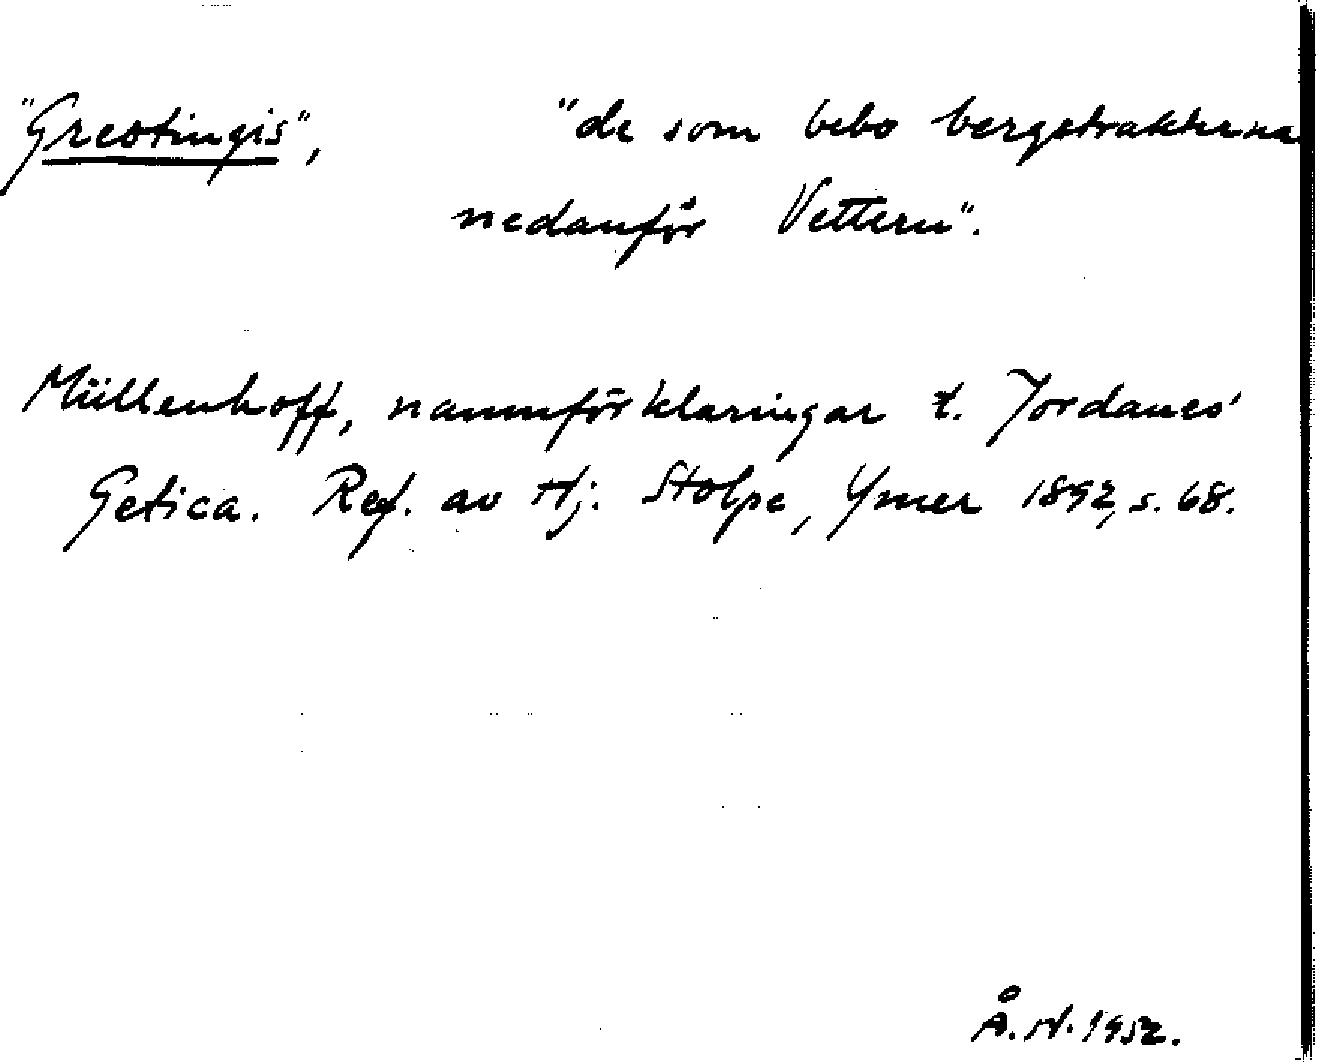 "Greotingis", "de som bebo bergstrakterna
nedanför Vettern".
Müllenhoff, namnförklaringar t. Jordanes'
Getica. Ref. av Hj. Stolpe, Ymer 1892, s. 68.
Å. N. 1952.